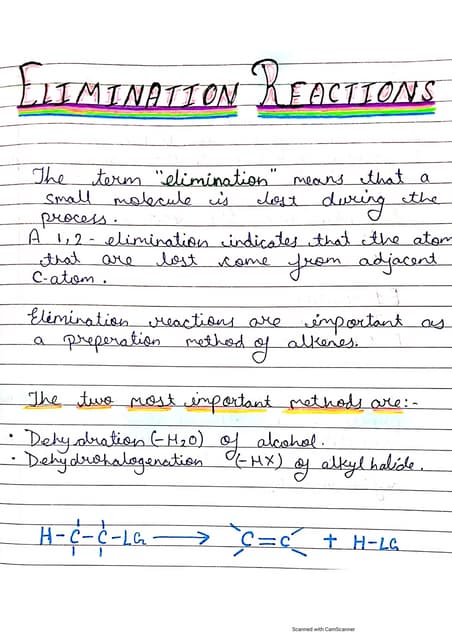 ELIMINATION REACTIONS
The term "elimination" means that a
small molecule is lost during the
process.
A 1,2-elimination indicates that the atom
that are lost come from adjacent
C-atom.
Elimination reactions are important as
a preperation method of alkenes.
The two most important methods are:-
• Dehydration (-H₂O) of alcohol.
• Dehydrohalogenation (-HX) of alkyl halide.
H-C-C-LG → C=C + H-LG
Scanned with CamScanner